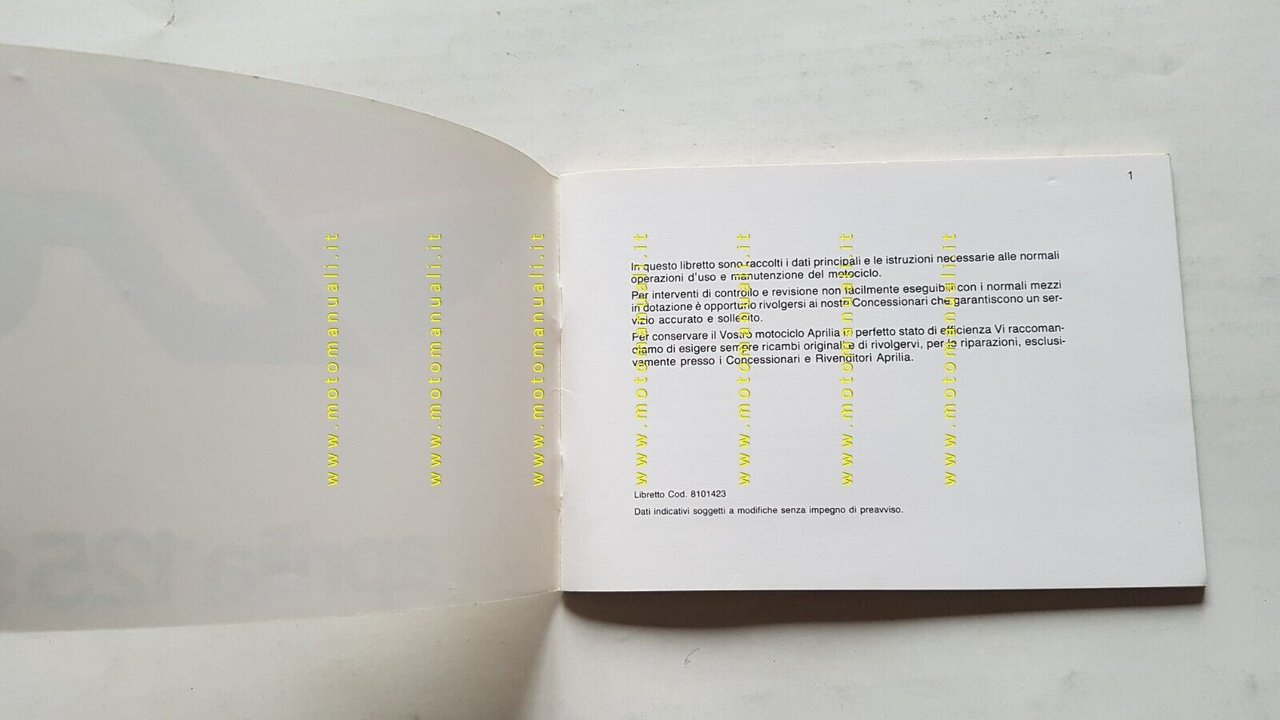 1
In questo libretto sono raccolti i dati principali e le istruzioni necessarie alle normali
operazioni d'uso e manutenzione del motociclo.
Per interventi di controllo e revisione non facilmente eseguibili con i normali mezzi
in dotazione è opportuno rivolgersi ai nostri Concessionari che garantiscono un ser-
vizio accurato e sollecito.
Per conservare il Vostro motociclo Aprilia in perfetto stato di efficienza Vi raccoman-
diamo di esigere sempre ricambi originali e di rivolgervi, per le riparazioni, esclusi-
vamente presso i Concessionari e Rivenditori Aprilia.
Libretto Cod. 8101423
Dati indicativi soggetti a modifiche senza impegno di preavviso.
www.motomanuali.it
www.motomanuali.it
www.motomanuali.it
www.motomanuali.it
www.motomanuali.it
www.motomanuali.it
www.motomanuali.it
aprilia 125